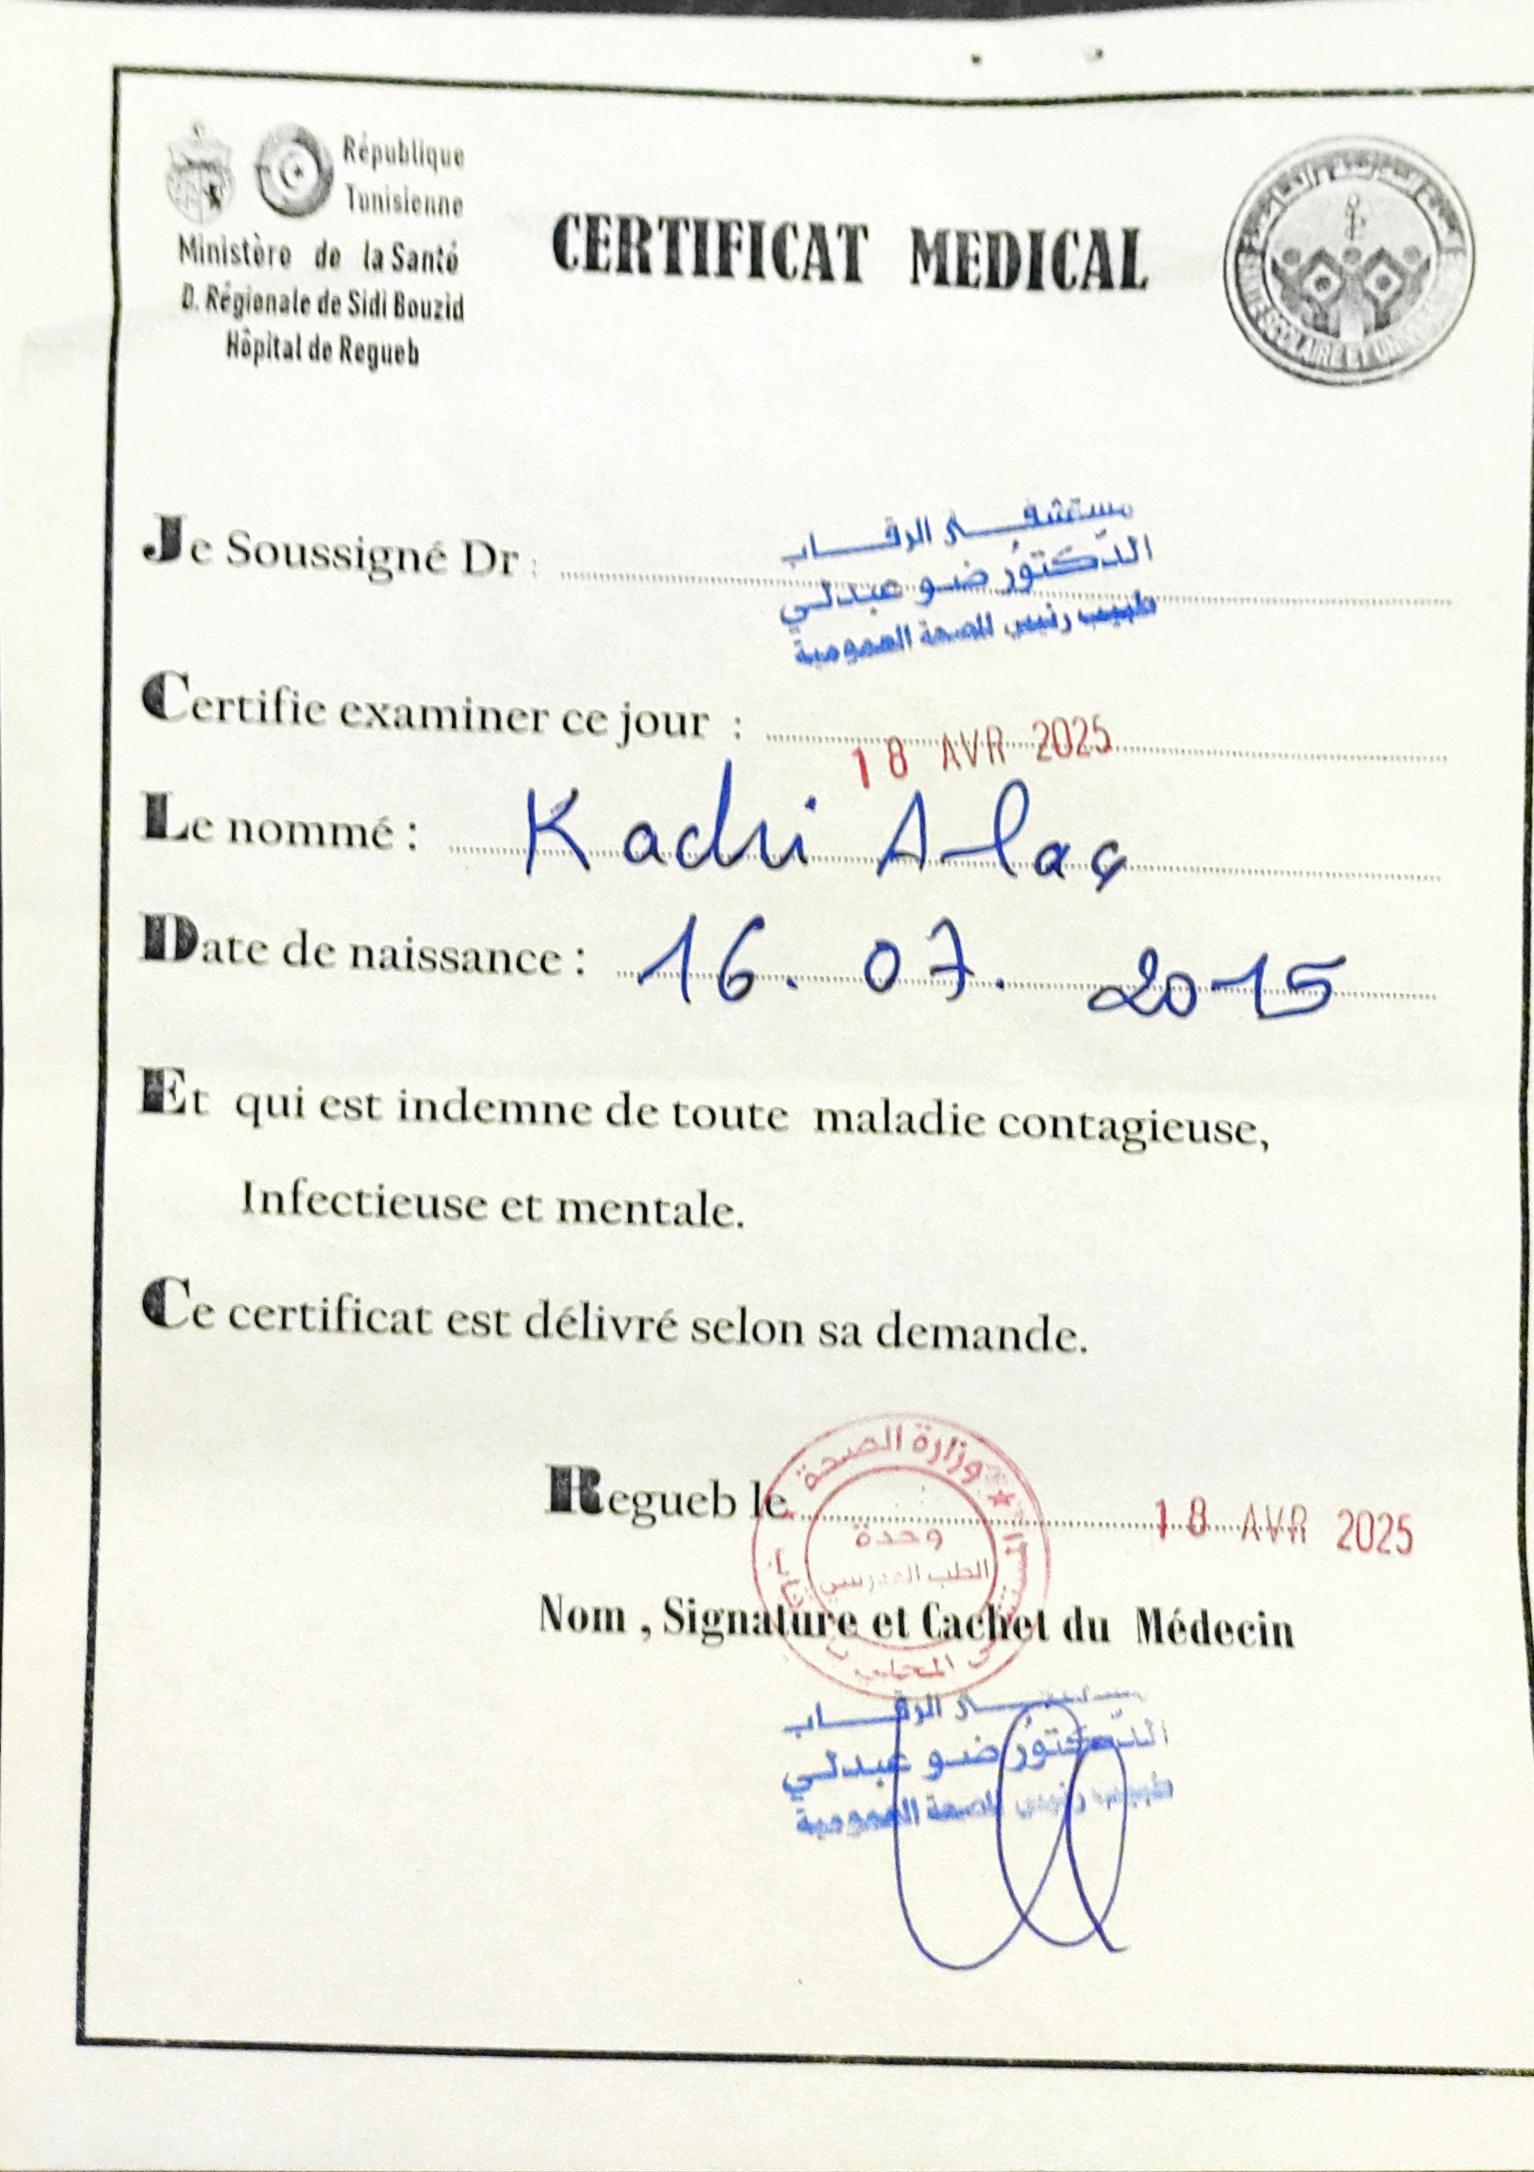 République
Tunisienne
Ministère de la Santé
D. Régionale de Sidi Bouzid
Hôpital de Regueb
CERTIFICAT MEDICAL
SCOLAIRE ET
Je Soussigné Dr :
مستشفى الرقاب
الدّكتور ضو عبدلي
طبيب رئيس للصحة العمومية
Certifie examiner ce jour : 18 AVR 2025
Le nommé : Kadri
Date de naissance : 16. 07. 2015
Et qui est indemne de toute maladie contagieuse,
Infectieuse et mentale.
Ce certificat est délivré selon sa demande.
Regueb le 18 AVR 2025
وزارة الصحة
وحدة
الطب المدرسي
Nom , Signature et Cachet du Médecin
المحلي
الرقاب
الدّكتور ضو عبدلي
طبيب رئيس للصحة العمومية